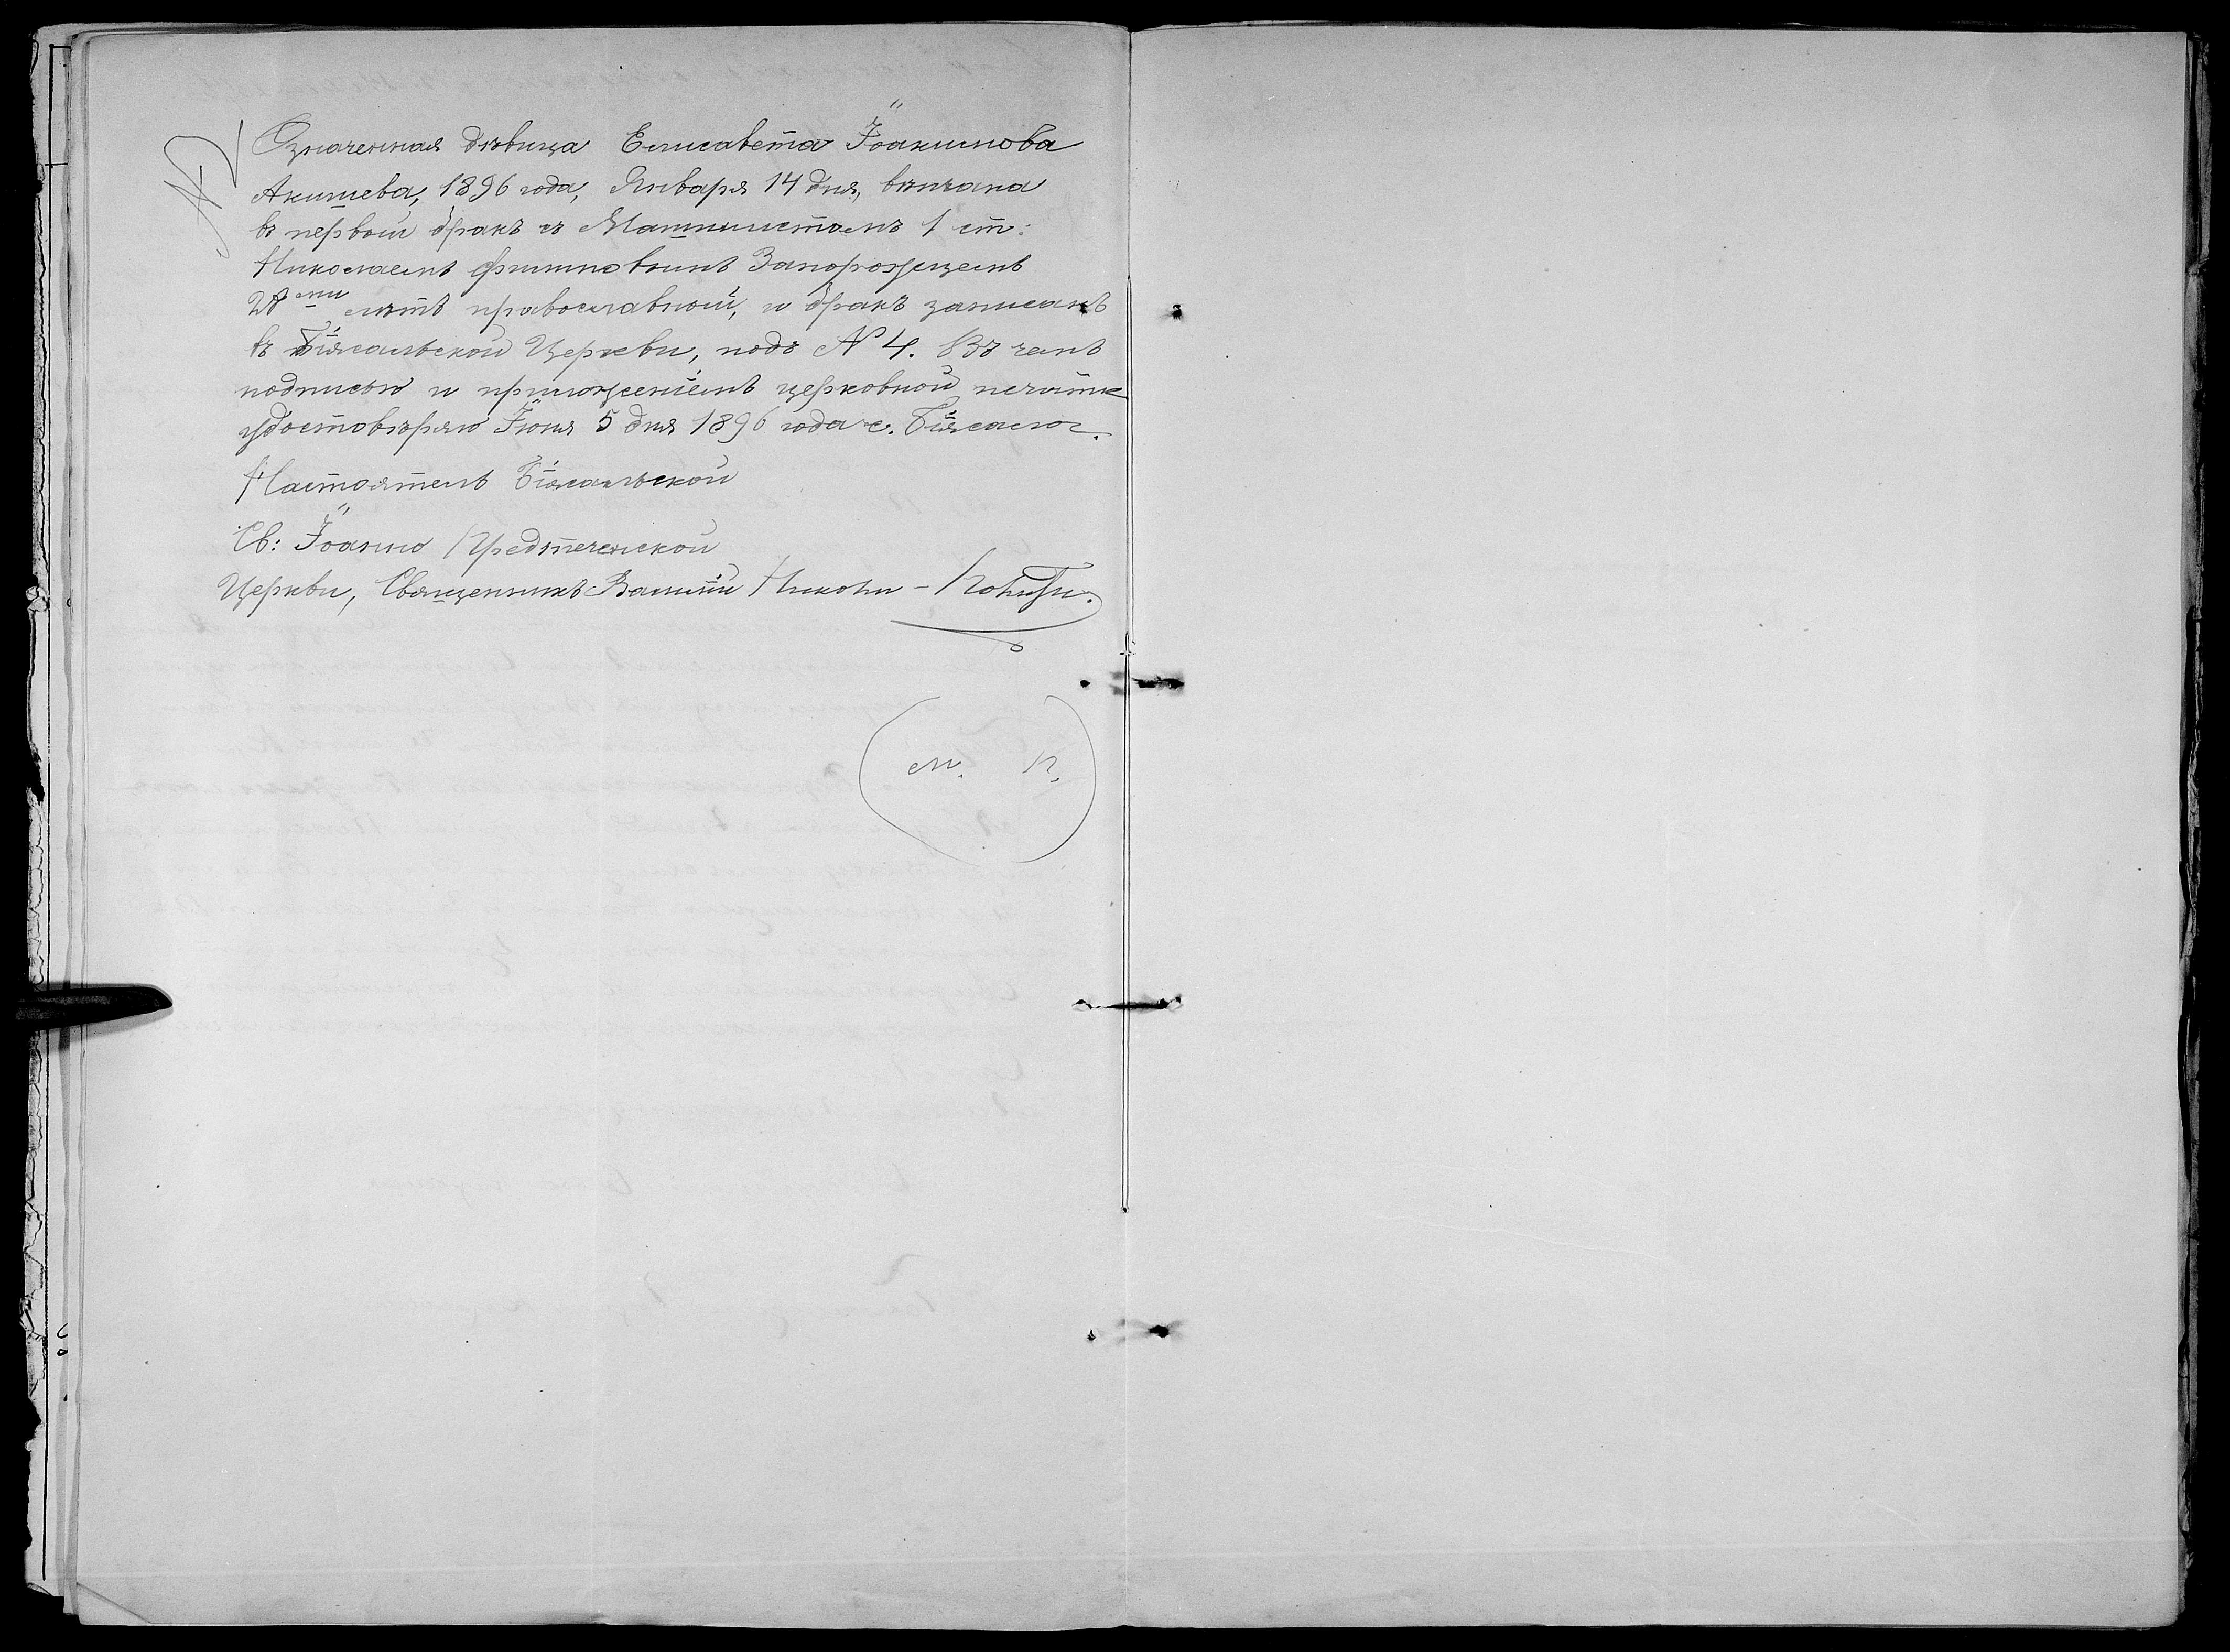 Означенная дѣвица Елисавета Іоакимова
Акишева, 1896 года, Января 14 дня, вѣнчана
въ первый бракъ съ Машинистомъ 1 ст:
Николаемъ Филипповымъ Запорожцемъ
лѣтъ православный, и бракъ записанъ
въ Біясальской Церкви, подъ № 4. Въ чемъ
подписью и приложеніемъ церковной печати
удостовѣряю Іюня 5 дня 1896 года с. Біясала.
Настоятель Біясальской
Св: Іоанно Предтеченской
Церкви, Священникъ Василій
М. П.